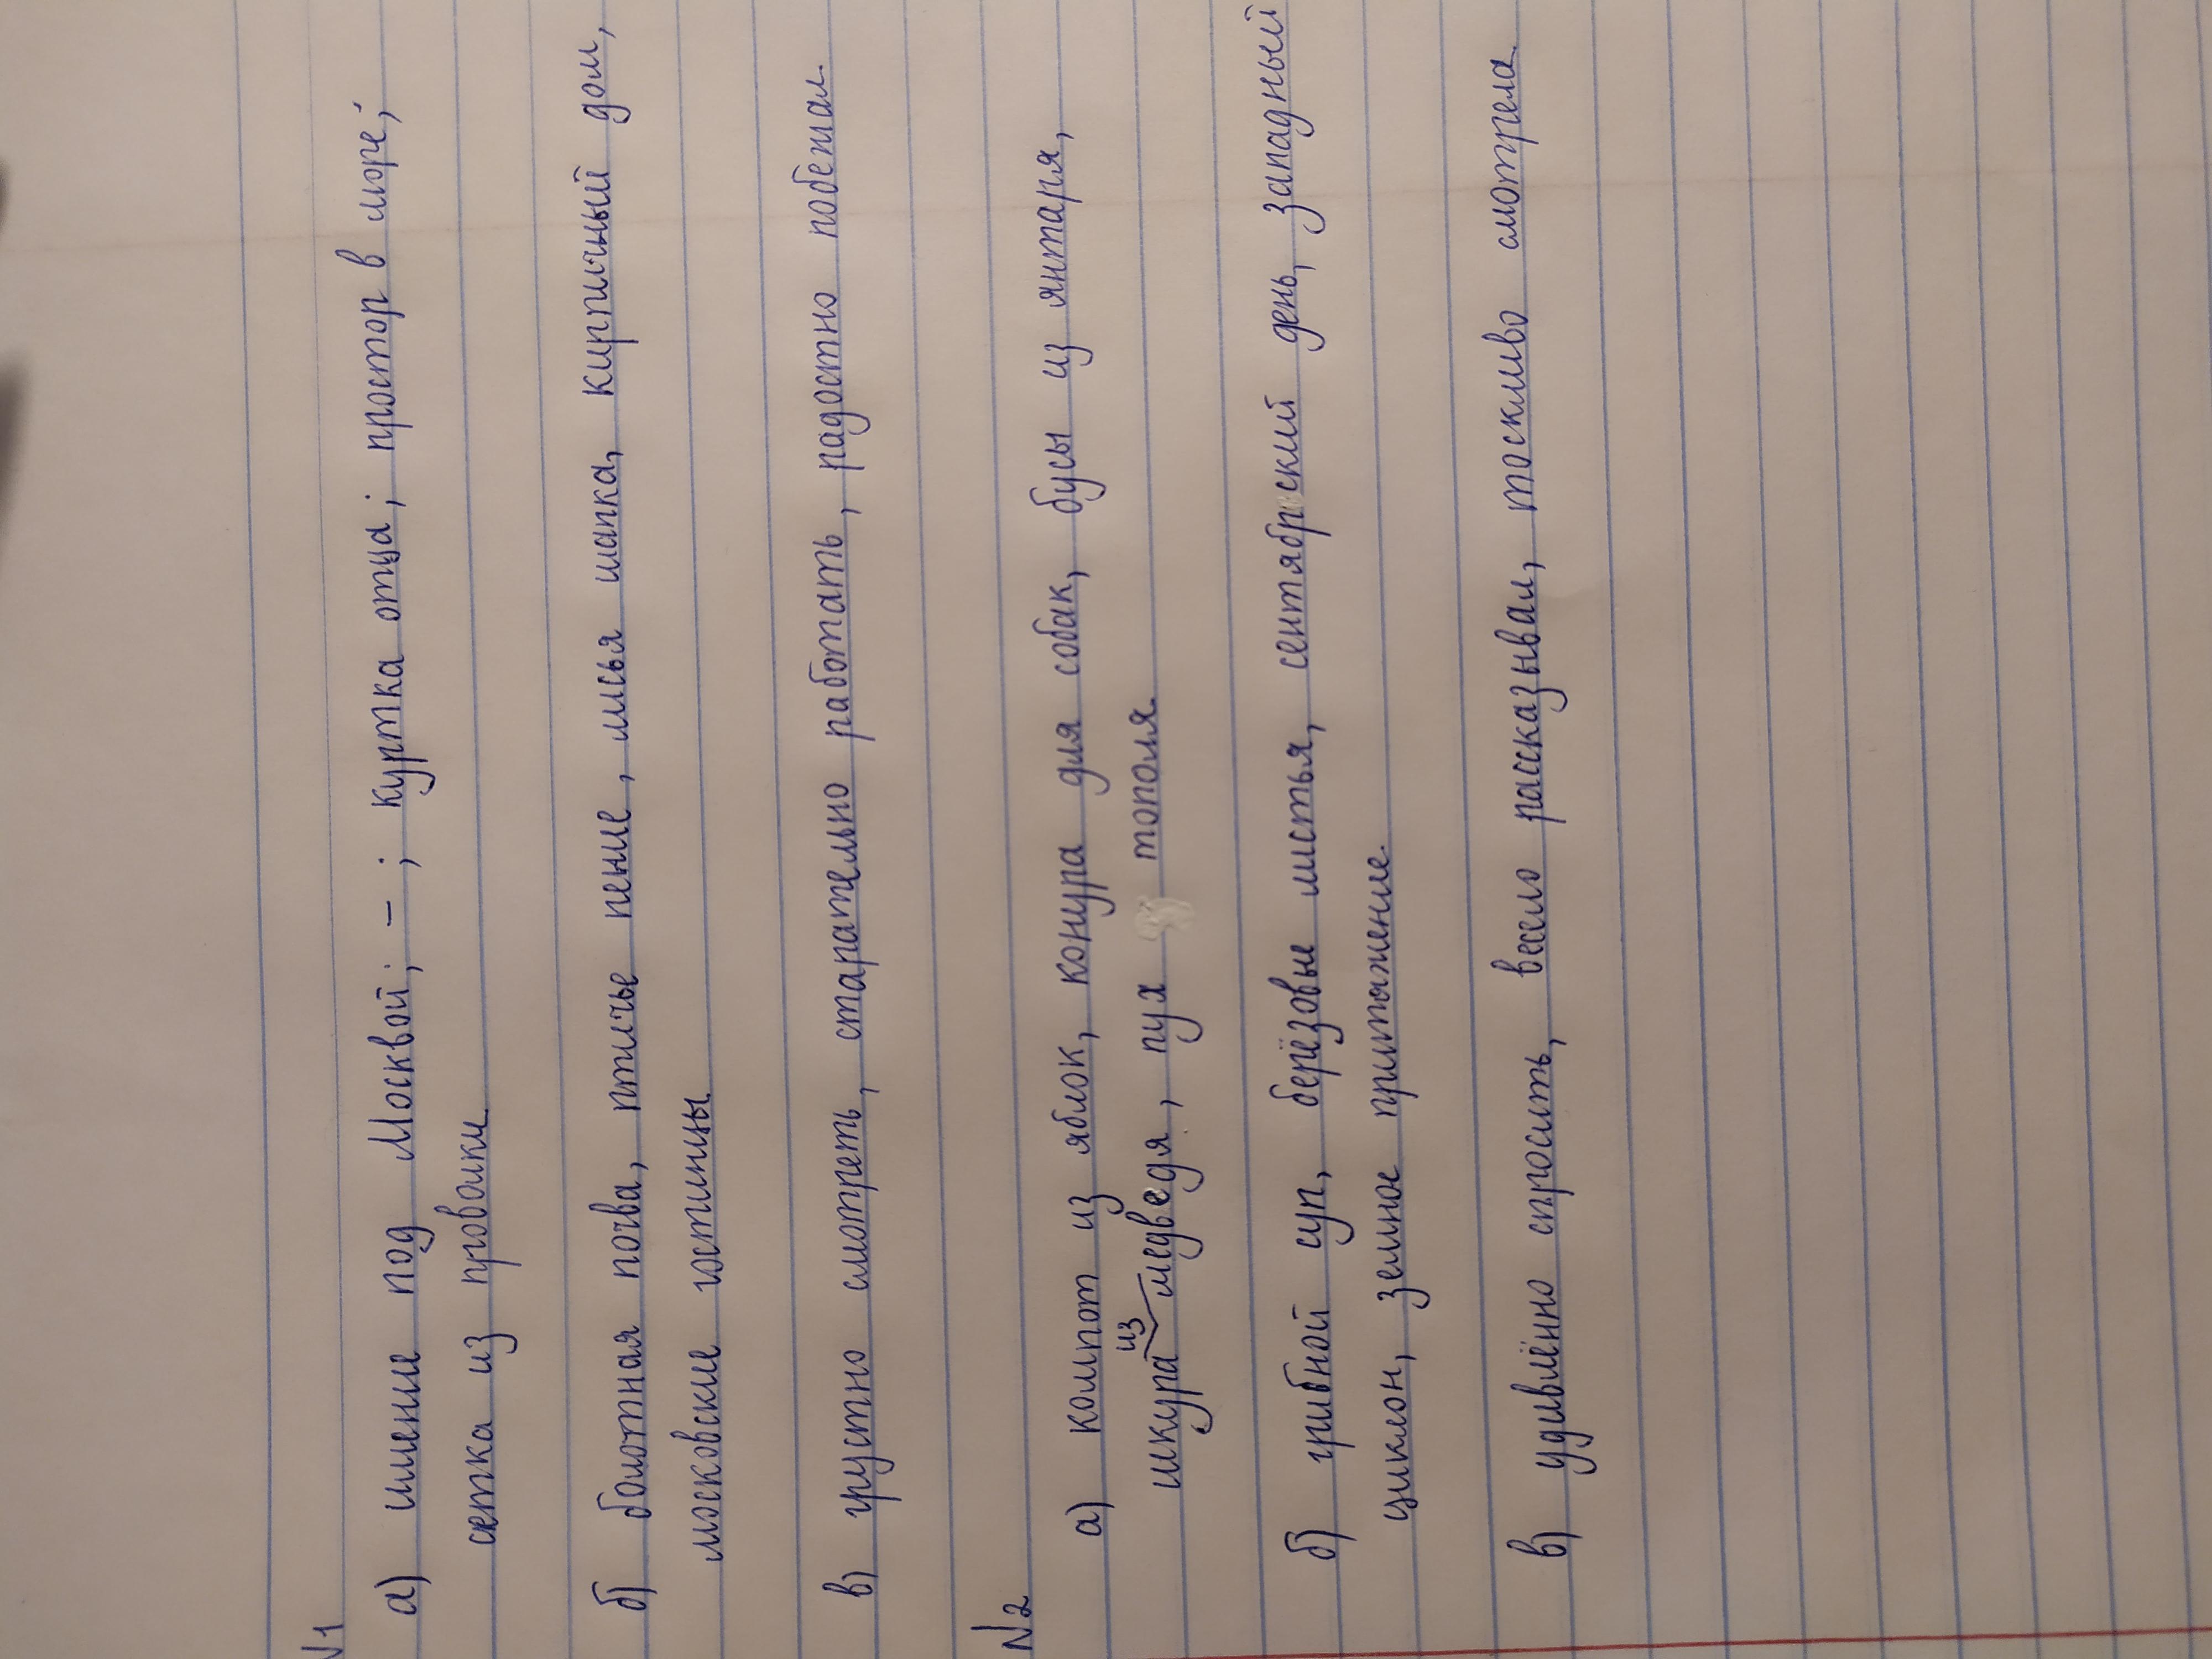 №1
а) имение под Москвой; – ; куртка отца; простор в море;
сетка из проволки
б) болотная почва, птичье пение, лисья шапка, кирпичный дом,
московские гостинцы
в) грустно смотреть, старательно работать, радостно побежал.
№2
а) компот из яблок, конура для собак, бусы из янтаря,
шкура из медведя, пух тополя
б) грибной суп, берёзовые листья, сентябрский день, западный
циклон, земное притяжение.
в) удивлённо спросить, весело рассказывал, тоскливо смотрела